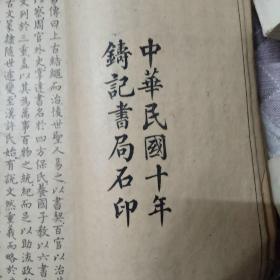 中華民國十年
鑄記書局石印
書傳曰上古結繩而治後世聖人易之以書契百官以治
以察周官外史掌達書名於四方保氏養國子教以六書
文列於三重蓋以其為萬事百物之統紀而足以助流政
古文篆隸隨世遞變至漢許氏始有說文然重義而略於